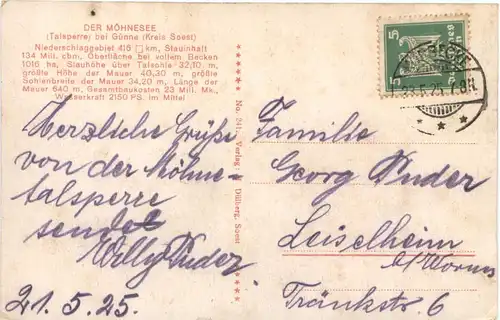 DER MÖHNESEE
(Talsperre) bei Günne (Kreis Soest)
Niederschlaggebiet 416 □ km, Stauinhalt
134 Mill. cbm, Oberfläche bei vollem Becken
1016 ha, Stauhöhe über Talsohle 32,10 m,
größte Höhe der Mauer 40,30 m, größte
Sohlenbreite der Mauer 34,20 m, Länge der
Mauer 640 m, Gesamtbaukosten 23 Mill. Mk.,
Wasserkraft 2150 PS. im Mittel
Herzliche Grüße
von der Möhne-
talsperre
sendet
Willy Huder.
21.5.25.
Verlag Dülberg, Soest
5
Familie
Georg Huder
Leiselheim
b/Worms
Tränkstr. 6